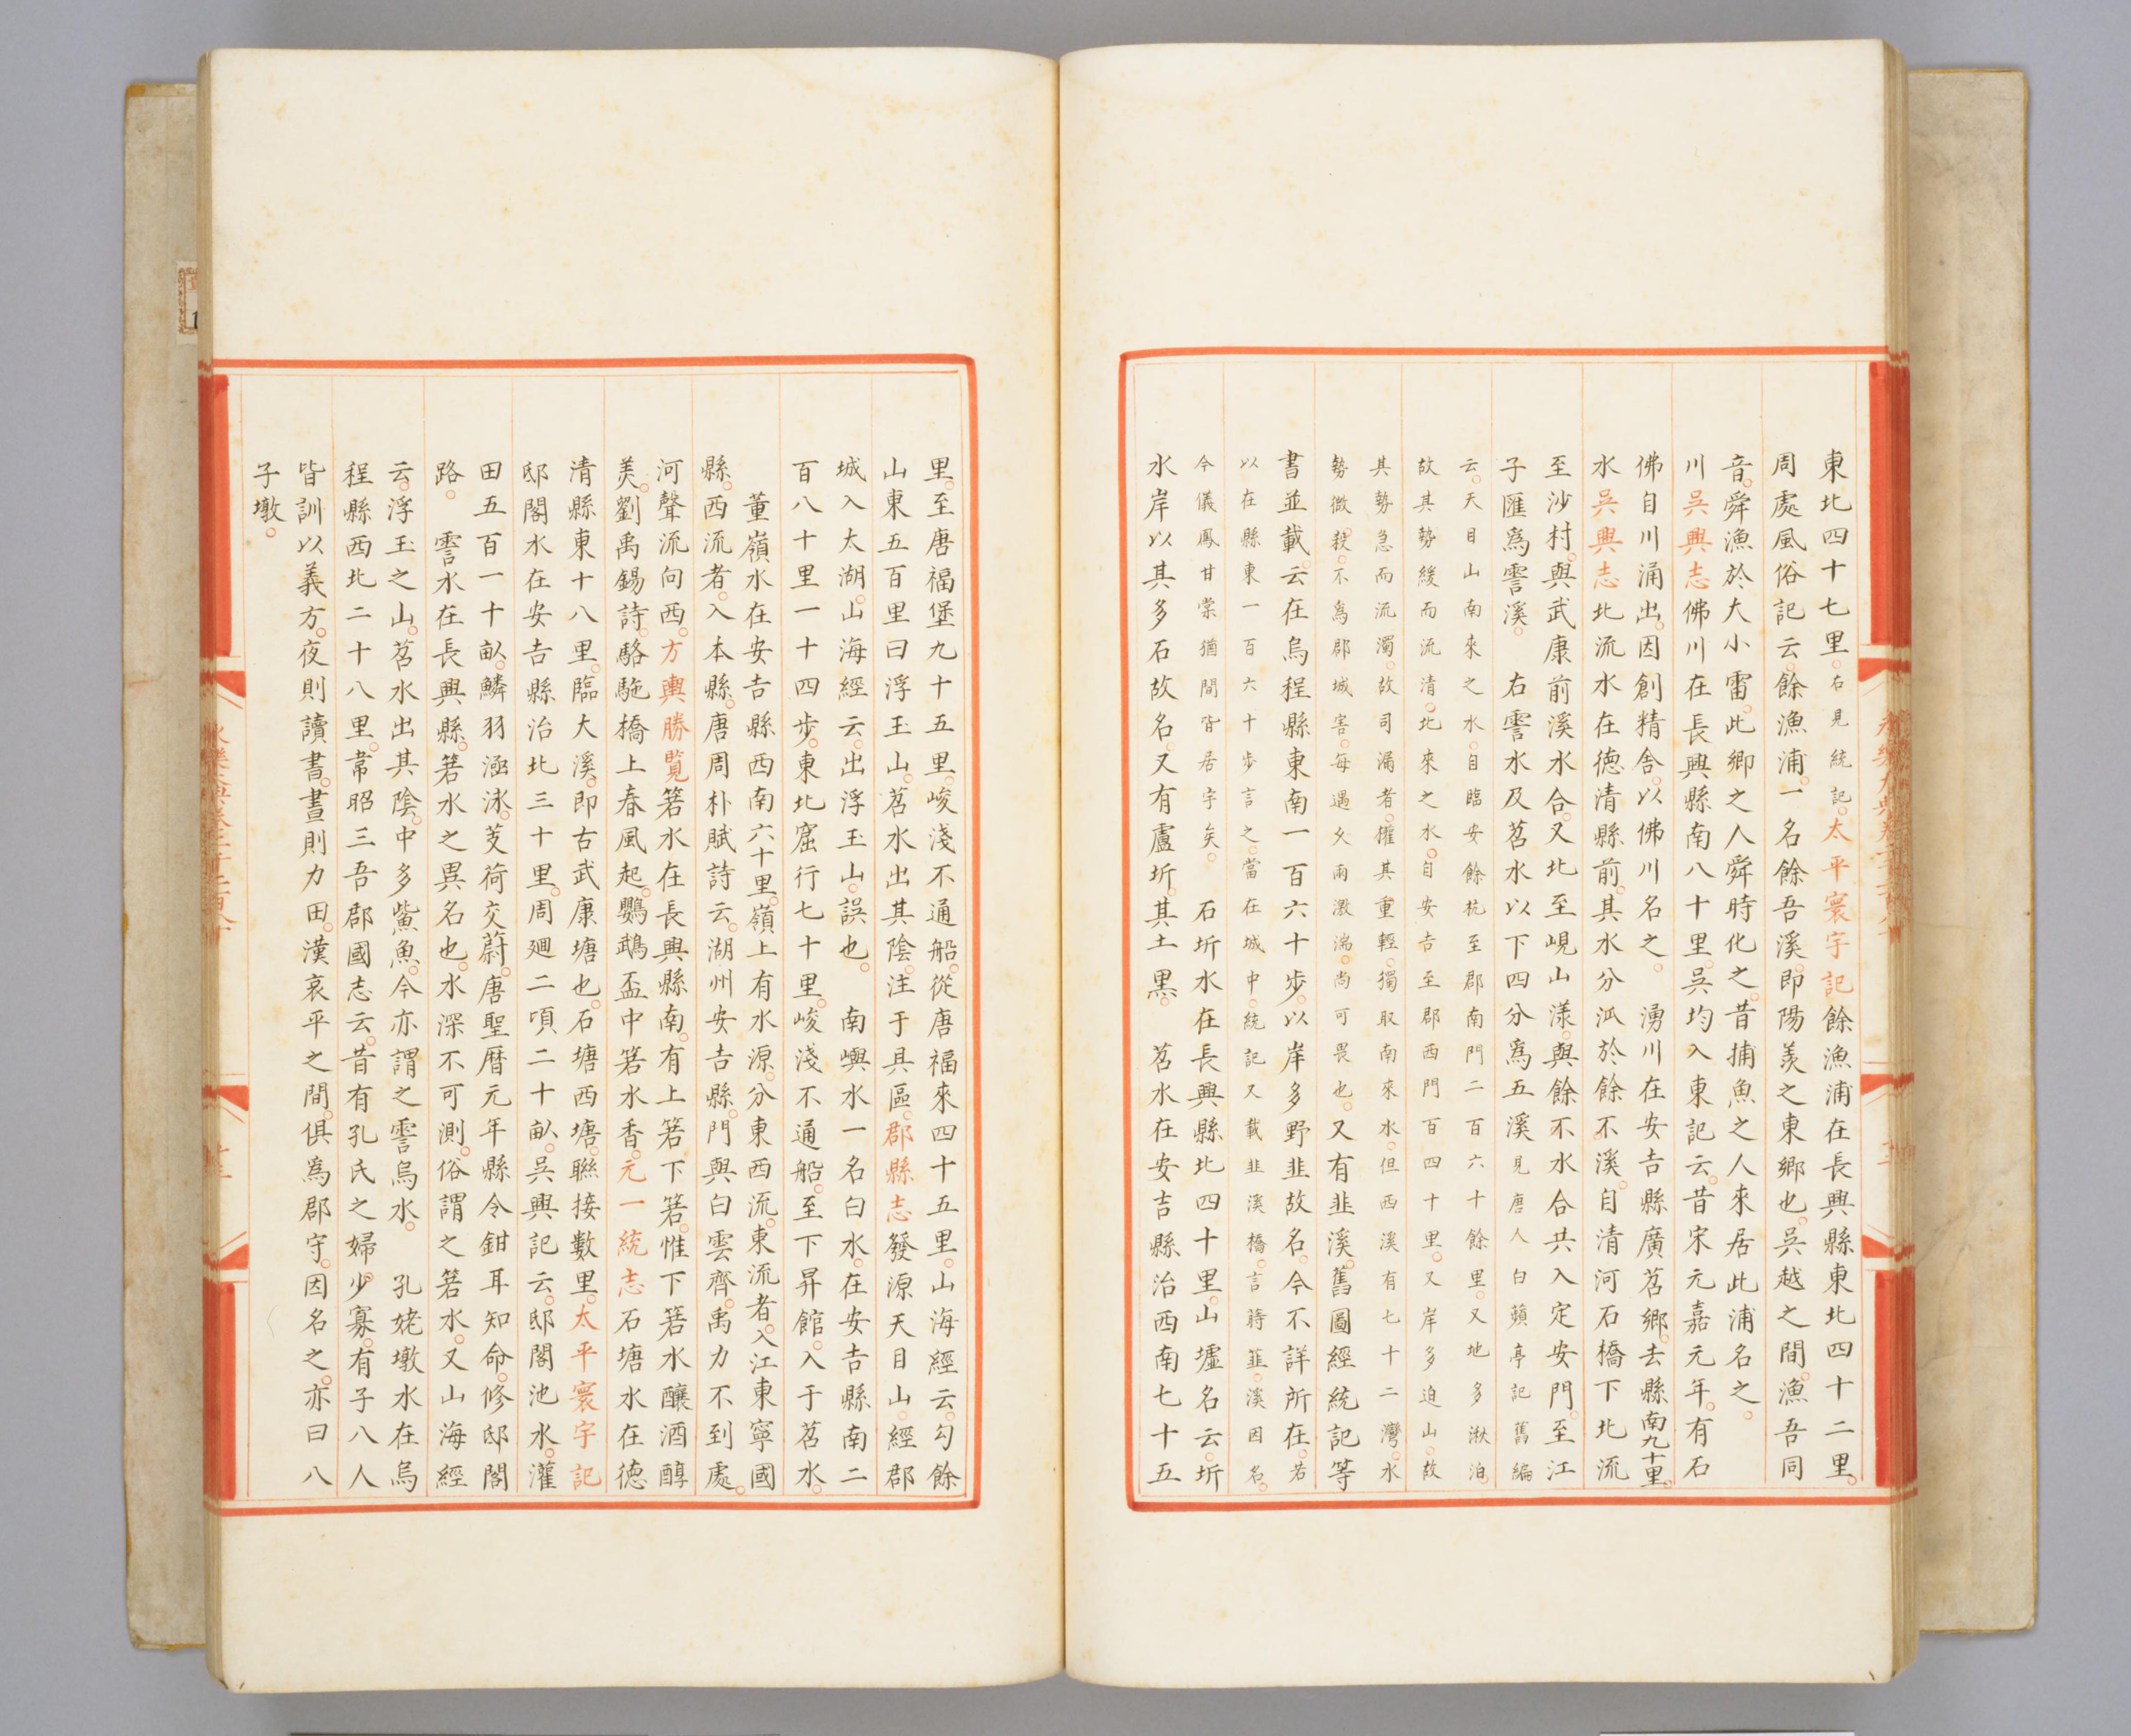 東北四十七里。右見統記。太平寰宇記餘漁浦在長興縣東北四十二里。
周處風俗記云。餘漁浦。一名餘吾溪。即陽羨之東鄉也。吳越之間。漁吾同
音。舜漁於大小雷。此鄉之人舜時化之。昔捕魚之人來居此浦名之。
川吳興志佛川在長興縣南八十里。吳均入東記云。昔宋元嘉元年。有石
佛自川涌出。因創精舍。以佛川名之。 湧川在安吉縣廣苕鄉。去縣南九十里。
水吳興志北流水在德清縣前。其水分派於餘不溪。自清河石橋下北流
至沙村。與武康前溪水合。又北至峴山漾。與餘不水合共入定安門。至江
子匯爲霅溪。 右霅水及苕水以下四分爲五溪見唐人白蘋亭記舊編
云。天目山南來之水。自臨安餘杭至郡南門二百六十餘里。又地多湫泊。
故其勢緩而流清。北來之水。自安吉至郡西門百四十里。又岸多迫山。故
其勢急而流濁。故司漏者。權其重輕。獨取南來水。但西溪有七十二灣。水
勢微殺。不爲郡城害。每遇久雨激湍。尚可畏也。又有韭溪。舊圖經統記等
書並載。云在烏程縣東南一百六十步。以岸多野韭故名。今不詳所在。若
以在縣東一百六十步言之。當在城中。統記又載韭溪橋。言蒔韮。溪因名。
今儀鳳甘棠猶間皆居宇矣。 石圻水在長興縣北四十里。山墟名云。圻
水岸以其多石故名。又有盧圻。其土黑。 苕水在安吉縣治西南七十五
里。至唐福堡九十五里。峻淺不通船。從唐福來四十五里。山海經云。勾餘
山東五百里曰浮玉山。苕水出其陰。注于具區。郡縣志發源天目山。經郡
城入太湖。山海經云。出浮玉山。誤也。 南嶼水一名白水。在安吉縣南二
百八十里一十四步。東北窟行七十里。峻淺不通船。至下昇館。入于苕水。
董嶺水在安吉縣西南六十里。嶺上有水源。分東西流。東流者。入江東寧國
縣。西流者。入本縣。唐周朴賦詩云。湖州安吉縣。門與白雲齊。禹力不到處。
河聲流向西。方輿勝覽箬水在長興縣南。有上箬下箬。惟下箬水釀酒醇
美。劉禹錫詩。駱駞橋上春風起。鸚鵡盃中箬水香。元一統志石塘水在德
清縣東十八里。臨大溪。即古武康塘也。石塘西塘。聯接數里。太平寰宇記
邸閣水在安吉縣治北三十里。周廻二頃二十畝。吳興記云。邸閣池水。灌
田五百一十畝。鱗羽涵泳。芰荷交蔚。唐聖曆元年縣令鉗耳知命。修邸閣
路。 霅水在長興縣。箬水之異名也。水深不可測。俗謂之箬水。又山海經
云。浮玉之山。苕水出其陰。中多鮆魚。今亦謂之霅烏水。 孔姥墩水在烏
程縣西北二十八里。韋昭三吾郡國志云。昔有孔氏之婦。少寡。有子八人
皆訓以義方。夜則讀書。晝則力田。漢哀平之間。俱爲郡守。因名之。亦曰八
子墩。